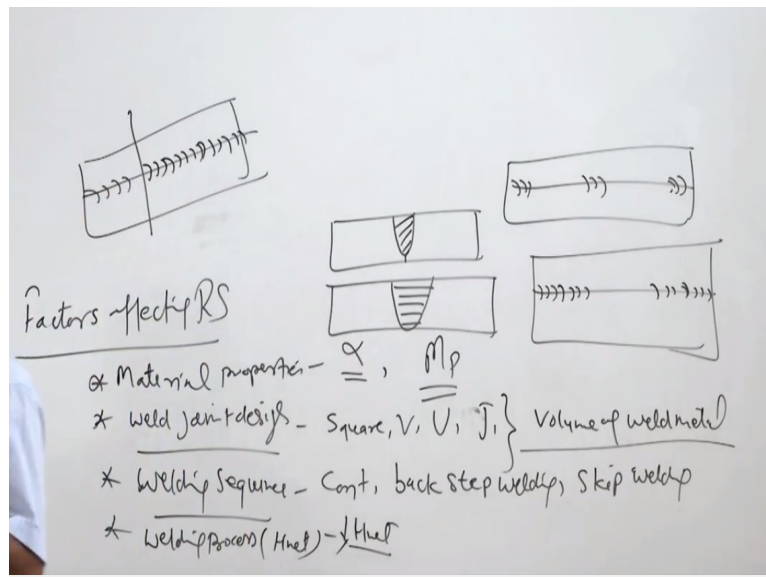 Factors affecting RS
* Material properties - α, Mp
* Weld joint design - Square, V, U, J, } Volume of weld metal
* Welding Sequence - Cont, back step welding, Skip welding
* Welding process (Hnet) - ↓ Hnet